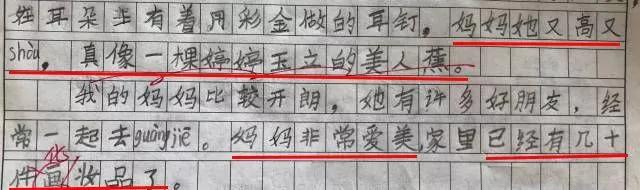 姓耳朵上有着用彩金做的耳钉。妈妈她又高又
shòu。真像一棵婷婷玉立的美人蕉。
我的妈妈比较开朗，她有许多好朋友，经
常一起去guàngjiē。妈妈非常爱美，家里已经有几十
化
件画妆品了。